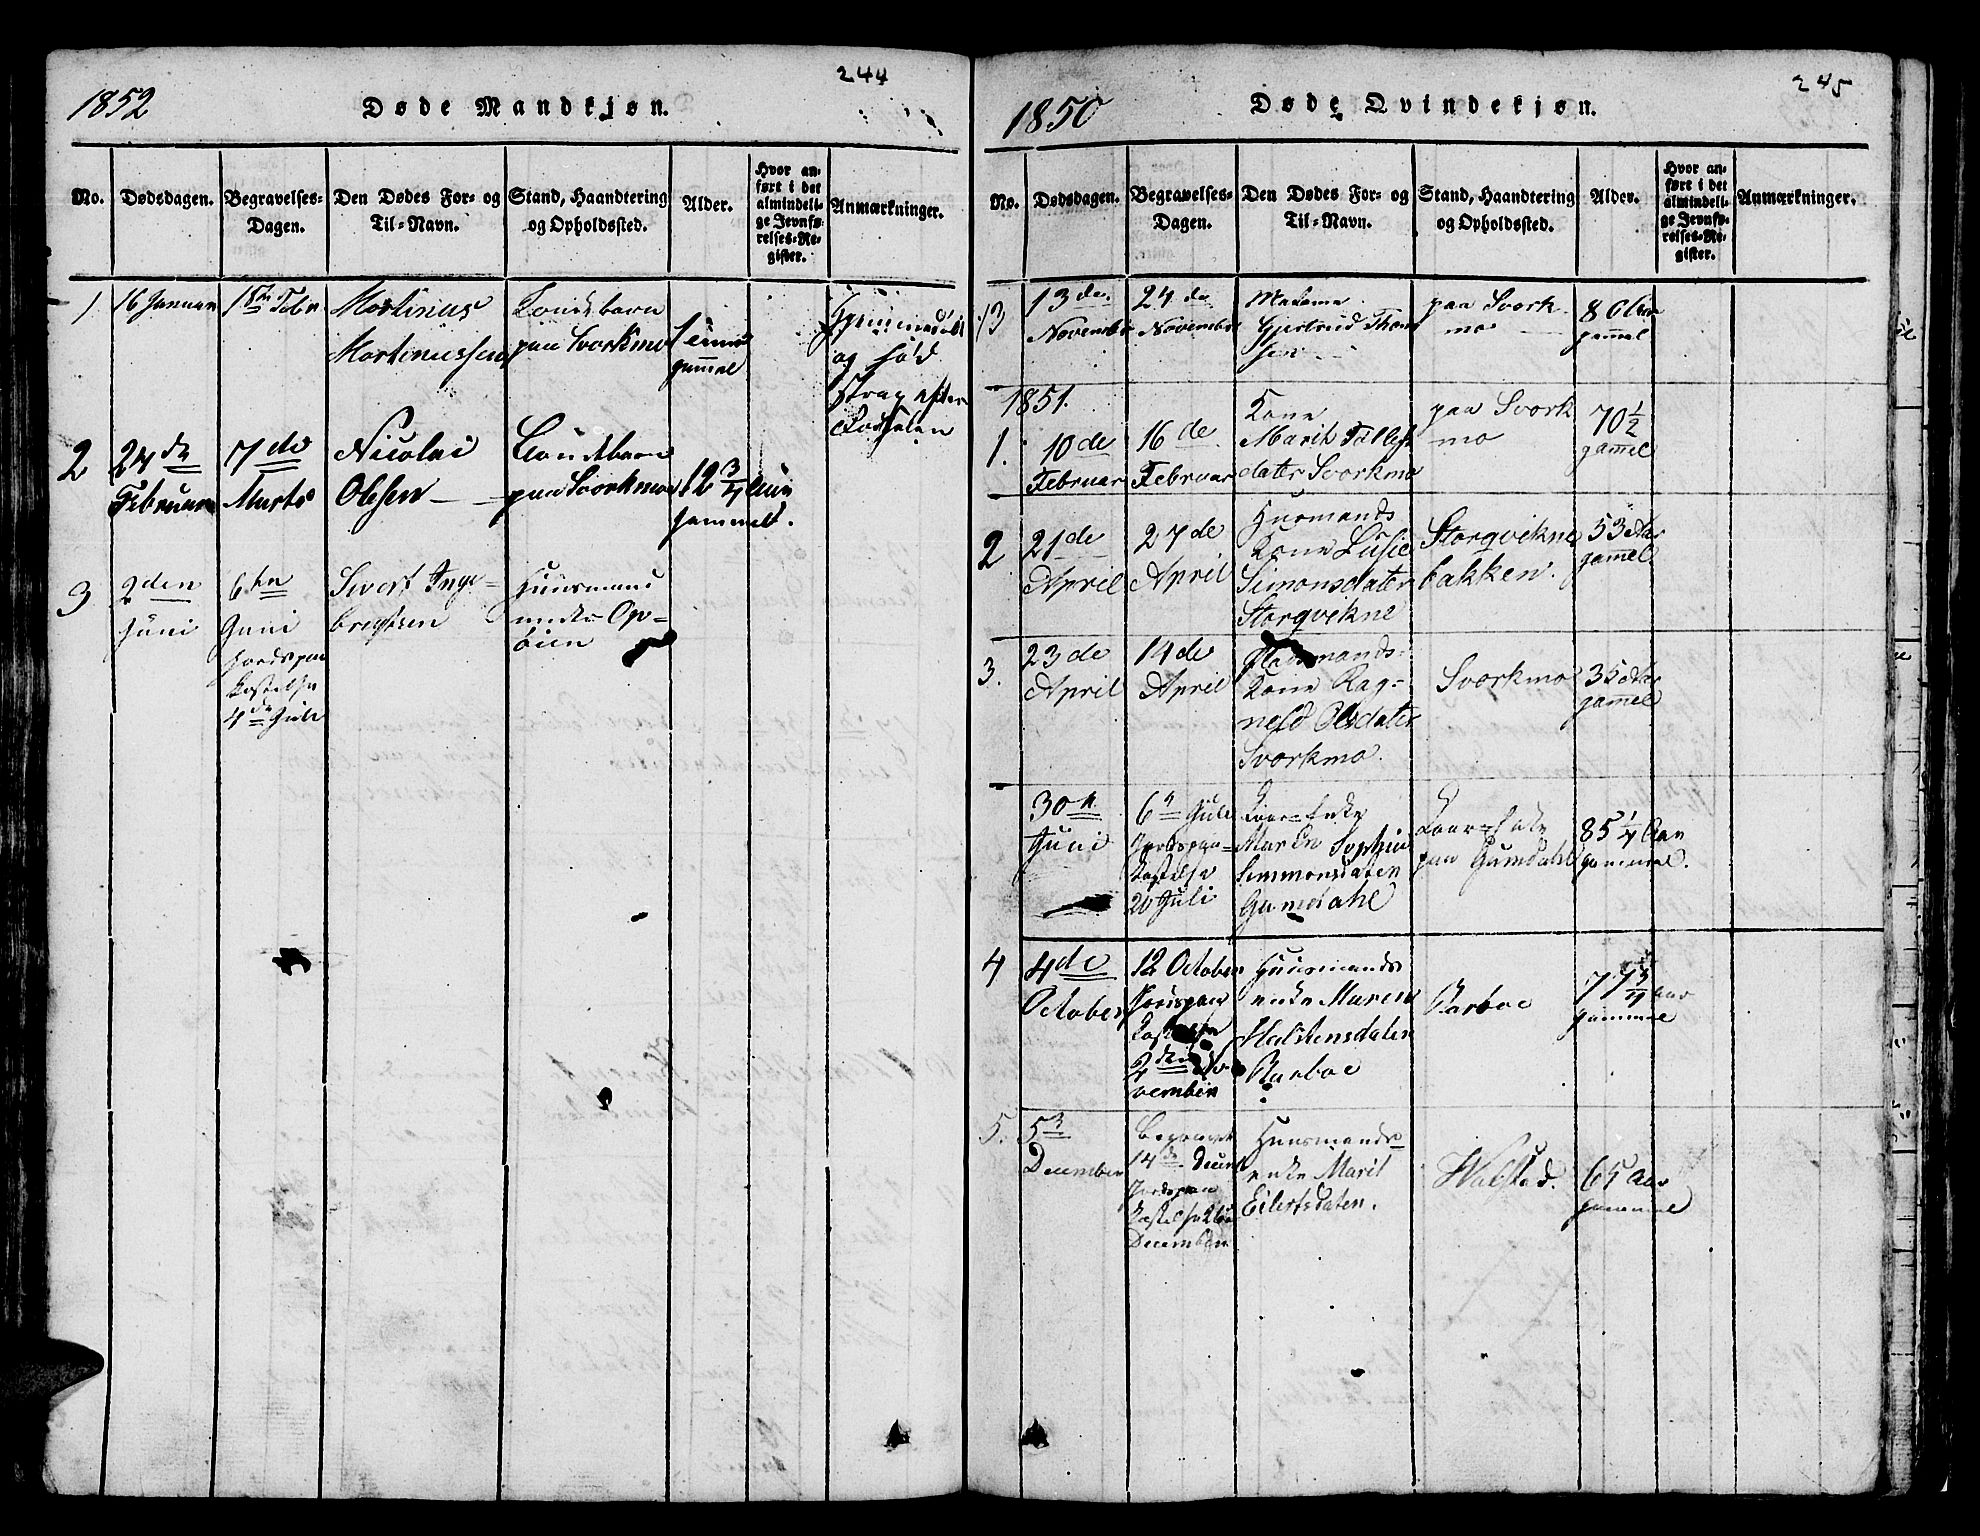 244
1852
Døde Mandkjøn.
No.
Dødsdagen.
Begravelses-
Dagen.
Den Dødes For- og
Til-Navn.
Stand, Haandtering
og Opholdssted.
Alder.
Hvor an-
ført i det
almindeli-
ge Jevnfø-
relses-Re-
gister.
Anmærkninger.
1
16 Januar
Martinus
Martinussen
paa Svorkmo
1 time
gammel
Hjemmedøbt
og død
strax efter
Fødselen
2
24de
Februar
7de
Marts
Nicolai
Olesen
paa Svorkmo
12 3/4 Aar
gammel.
3
2den
Juni
6te
Juni
Jordspaa
kastelse
4de Juli
Sivert Inge-
brigtsen
Huusmand
under Op-
øien
245
1850
Døde Qvindekjøn.
No.
Dødsdagen.
Begravelses-
Dagen.
Den Dødes For- og
Til-Navn.
Stand, Haandtering
og Opholdssted.
Alder.
Hvor an-
ført i det
almindeli-
ge Jevnfø-
relses-Re-
gister.
Anmærkninger.
13
13de
November
24de
November
Madame
Gjertrud Thom
sen
paa Svork
mo
86 Aar
gammel
1851.
1.
10de
Februar
16de
Februar
Kone
Marit
dater Svorkmo
paa Svork
mo
70 1/2
gammel
2
21de
April
27de
April
Huusmands
Kone Lusie
Simonsdater
Storqvikne
Storqvikne
bakken.
53 Aar
gammel
3.
23de
April
14de
April
Kone Rag-
neld Olsdater
Svorkmo.
Svorkmo
35 Aar
gammel
30te
Juni
6te Juli
Jordspaa-
kastelse
20 Juli
Maren Sophie
Simmonsdater
Gumdahl
paa Gumdahl
85 1/4 Aar
gammel.
4
4de
October
12 October
Jordspaa
kastelse
2den No
vember
Huusmands
enke Maren
Halstensdater
Barboe
Barboe
77 3/4 Aar
gammel
5.
5te
December
Begravet
14de Decemb
Jordspaa
kastelse 26de
December
Huusmands
enke Marit
Eilertsdater.
Walstad.
65 Aar
gammel